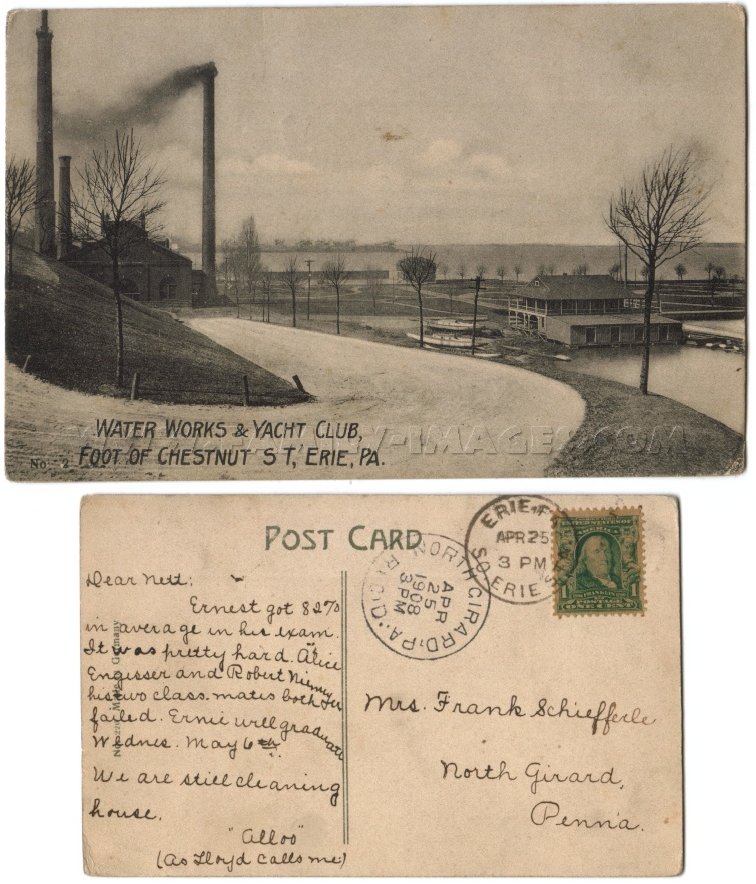 WATER WORKS & YACHT CLUB,
FOOT OF CHESTNUT ST, ERIE, PA.
No. 2
POST CARD
Dear Nett:
Ernest got 82%
in average in his exam.
It was pretty hard. Alice
Engisser and Robert
his two class-mates both
failed. Ernie will graduate
Wednes. May 6th
We are still cleaning
house.
"Alloo"
(as Lloyd calls me)
Germany
NORTH GIRARD, PA.
REC'D.
APR
25
3 PM
1908
ERIE, PA
APR 25
3 PM
SO. ERIE STA.
UNITED STATES OF
AMERICA
1 1
FRANKLIN
POSTAGE
ONE CENT
Mrs. Frank Schiefferle
North Girard,
Penna.